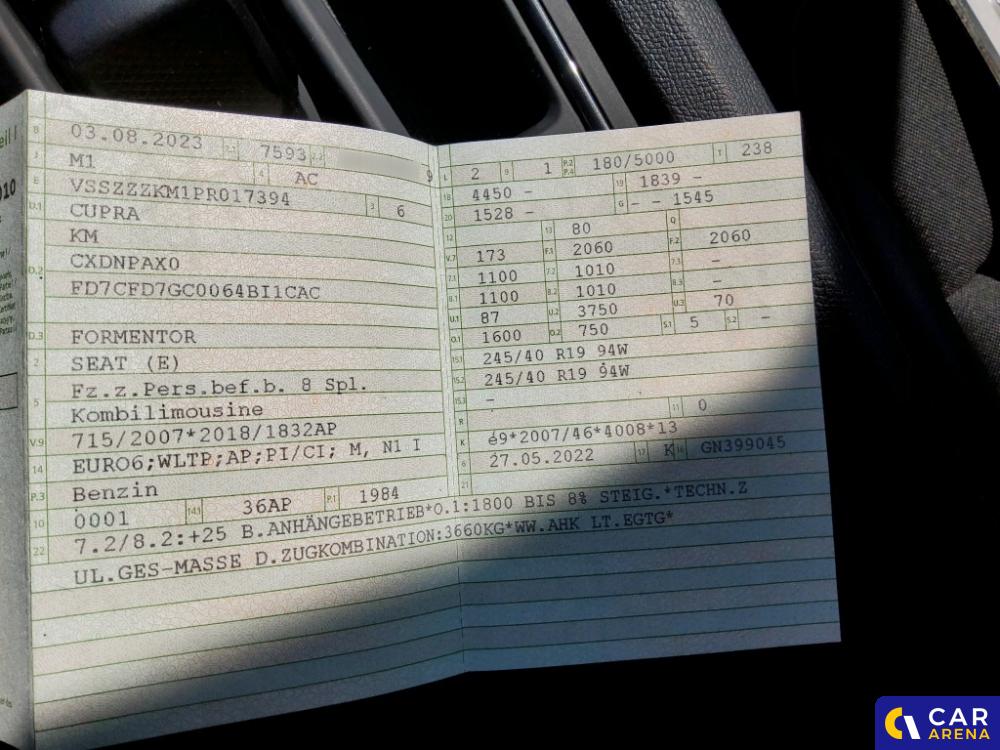 eil I
010
B 03.08.2023 2.1 7593 2.2 9
J M1 4 AC
E VSSZZZKM1PR017394 3 6
D.1 CUPRA
KM
D.2 CXDNPAX0
FD7CFD7GC0064BI1CAC
D.3 FORMENTOR
2 SEAT (E)
5 Fz.z.Pers.bef.b. 8 Spl.
Kombilimousine
V.9 715/2007*2018/1832AP
14 EURO6;WLTP;AP;PI/CI; M, N1 I
P.3 Benzin
10 0001 14.1 36AP P.1 1984
L 2 9 1 P.2 P.4 180/5000 T 238
18 4450 - 19 1839 -
20 1528 - G - - 1545
12 13 80 Q
V.7 173 F.1 2060 F.2 2060
7.1 1100 7.2 1010 7.3 -
8.1 1100 8.2 1010 8.3 -
U.1 87 U.2 3750 U.3 70
O.1 1600 O.2 750 S.1 5 S.2 -
15.1 245/40 R19 94W
15.2 245/40 R19 94W
15.3 -
R 11 0
K e9*2007/46*4008*13
6 27.05.2022 17 K 16 GN399045
21
22 7.2/8.2:+25 B.ANHÄNGEBETRIEB*O.1:1800 BIS 8% STEIG.*TECHN.Z
UL.GES-MASSE D.ZUGKOMBINATION:3660KG*WW.AHK LT.EGTG*
CAR
ARENA